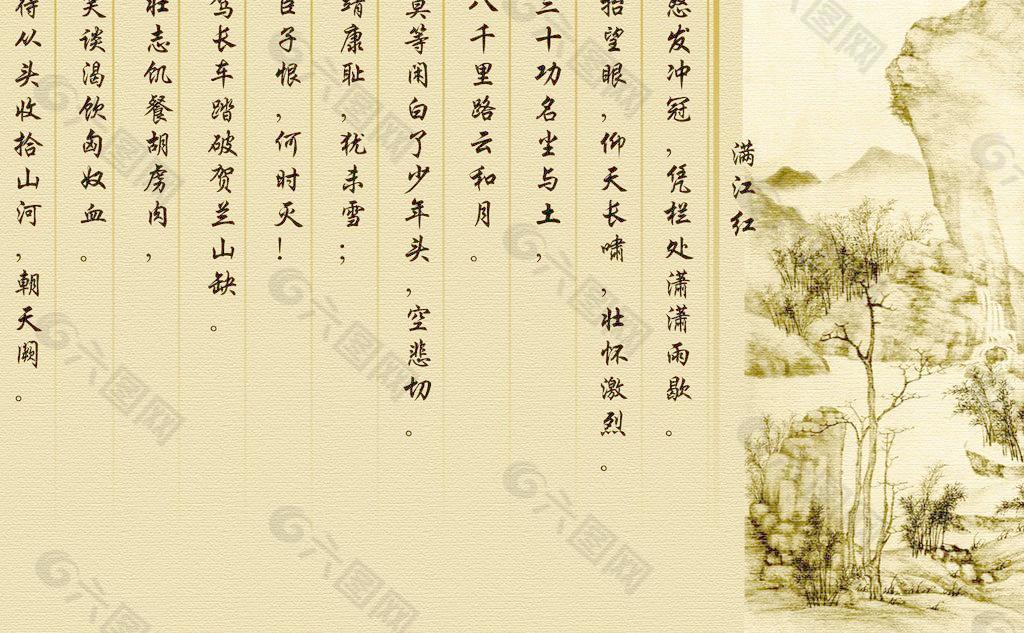 满江红
怒发冲冠,凭栏处潇潇雨歇。
抬望眼,仰天长啸,壮怀激烈。
三十功名尘与土,
八千里路云和月。
莫等闲白了少年头,空悲切。
靖康耻,犹未雪;
臣子恨,何时灭!
驾长车踏破贺兰山缺。
壮志饥餐胡虏肉,
笑谈渴饮匈奴血。
待从头收拾山河,朝天阙。
六图网